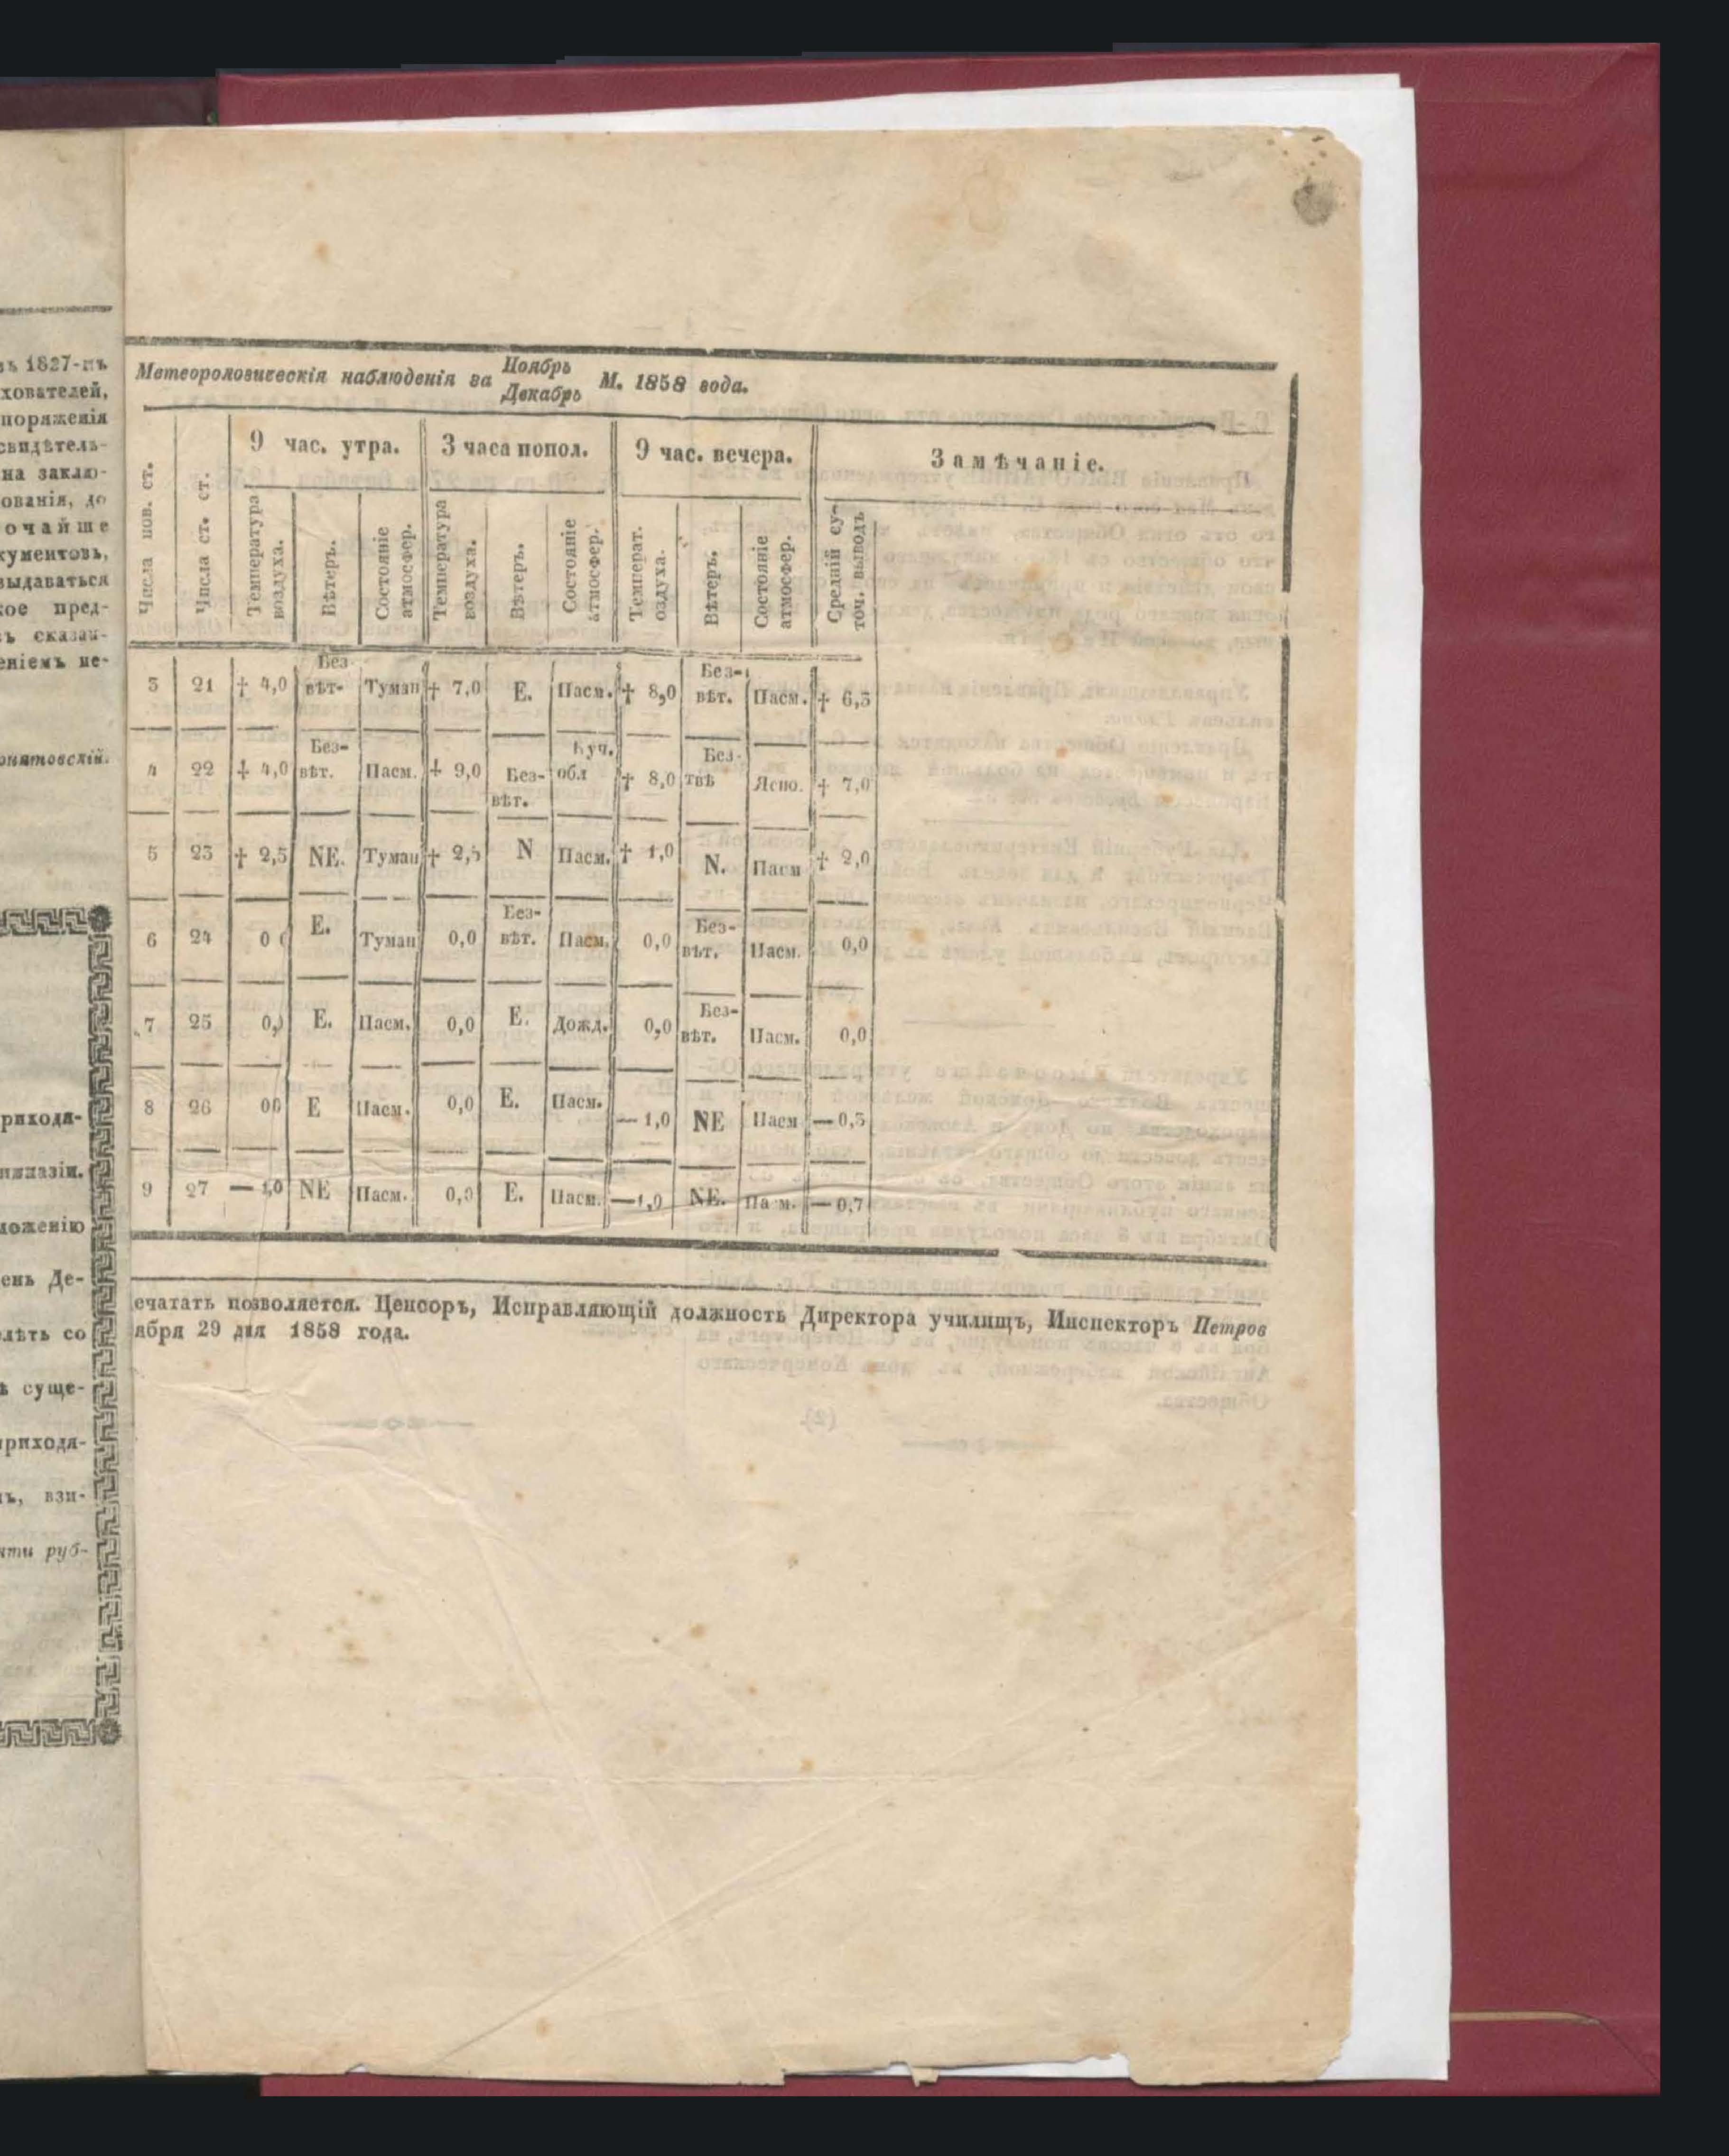 1827-мъ
хователей,
поряженія
свидѣтель-
на заклю-
ованія, до
очайше
кументовъ,
выдаваться
кое пред-
ъ сказан-
еніемъ не-
онятовскій.
риходя-
имназіи.
ложенію
ень Де-
лѣть со
ѣ суще-
риходя-
ъ, взи-
яти руб-
Метеорологическія наблюденія за Ноябрь Декабрь М. 1858 года.
Числа нов. ст. | Числа ст. ст. | 9 час. утра. | 3 часа попол. | 9 час. вечера. | Замѣчаніе.
Температура воздуха. | Вѣтеръ. | Состояніе атмосфер. | Температура воздуха. | Вѣтеръ. | Состояніе атмосфер. | Температ. оздуха. | Вѣтеръ. | Состояніе атмосфер. | Средній су-точ. выводъ
3 | 21 | † 4,0 | Без-вѣт- | Туман | † 7,0 | Е. | Пасм. | † 8,0 | Без-вѣт. | Пасм. | † 6,3
4 | 22 | † 4,0 | Без-вѣт. | Пасм. | † 9,0 | Без-вѣт. | Куч. обл | † 8,0 | Без-твѣ | Ясно. | † 7,0
5 | 23 | † 2,5 | NE. | Туман | † 2,5 | N | Пасм. | † 1,0 | N. | Пасм | † 2,0
6 | 24 | 0 0 | Е. | Туман | 0,0 | Без-вѣт. | Пасм. | 0,0 | Без-вѣт. | Пасм. | 0,0
7 | 25 | 0,0 | Е. | Пасм. | 0,0 | Е. | Дожд. | 0,0 | Без-вѣт. | Пасм. | 0,0
8 | 26 | 00 | Е | Пасм. | 0,0 | Е. | Пасм. | — 1,0 | NE | Пасм | — 0,3
9 | 27 | — 1,0 | NE | Пасм. | 0,0 | Е. | Пасм. | —1,0 | NE. | Па м. | — 0,7
ечатать позволяется. Ценсоръ, Исправляющій должность Директора училищъ, Инспекторъ Петров
ября 29 дня 1858 года.